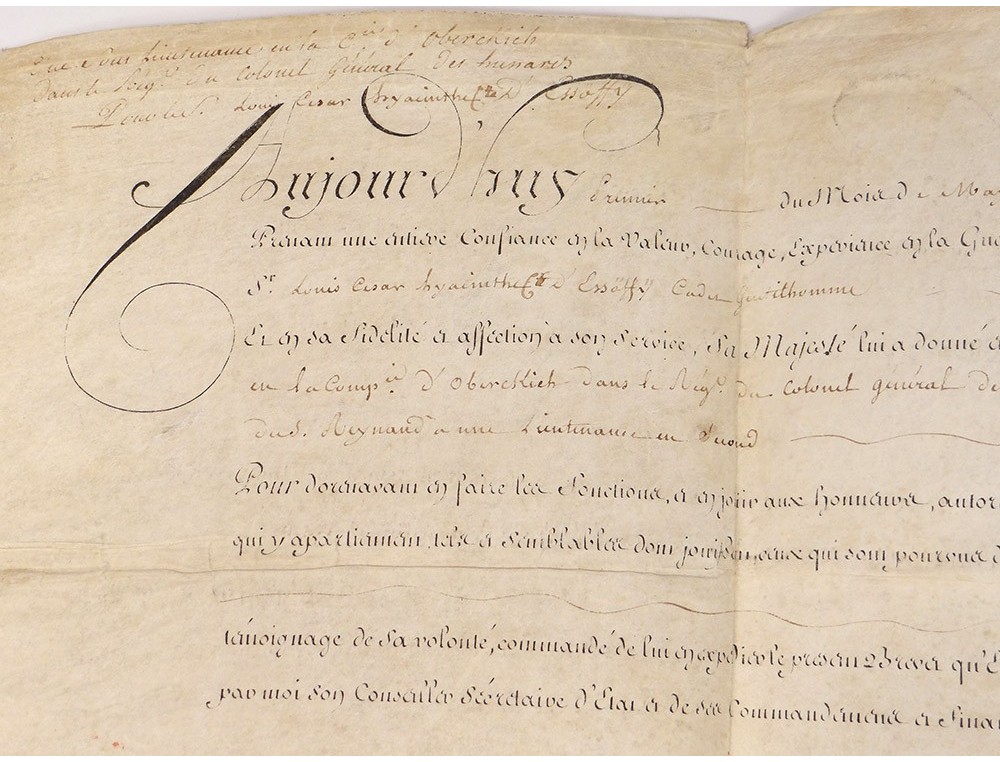 dans le Régt. du Colonel Général des hussards
Pour le Sr. Louis Cesar hyacinthe Cte D'Essoffy
Aujourd'huy Premier du Mois de May
Prenant une entiere Confiance en la Valeur, Courage, Experience en la Gue
Sr. Louis Cesar hyacinthe Cte D'Essöffy Cadet Gentilhomme
Et en sa fidelité et affection a son service, Sa Majesté lui a donné e
en la Compie. d'Oberckich dans le Régt. du Colonel général de
du S. Reynaud a une Lieutenance en Second
Pour dorenavant en faire les fonctions, et en jouir aux honneurs, autor
qui y apartiennent, tels et semblables dont jouissent, ceux qui sont pourvus d
témoignage de sa volonté, commandé de lui en expedier le present Brevet qu'E
par moi son Conseiller Sécretaire d'Etat et de ses Commandemens et Finan